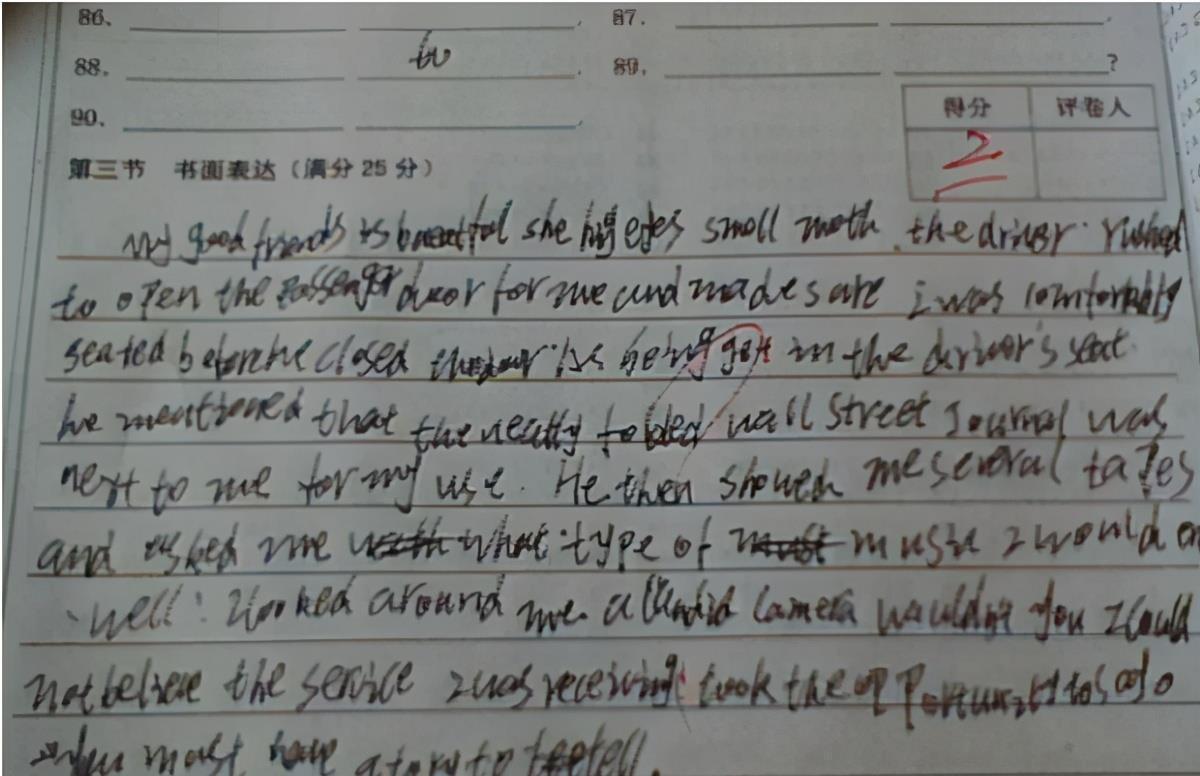 86、 . 87.
88. to . 89. ?
90、 .
得分 评卷人
第三节 书面表达（满分 25 分） 2
my good friends is beautful she big eyes small moth. the driver rushed
to open the passenger door for me and made sare i was comfortably
seated before he closed in the driver's seat.
he mentioned that the neatly folded wall street Journal was
next to me for my use. He then showed me several tapes
and asked me what type of music I would en
well. I looked around me. a candid camera wouldn't you I could
not believe the service I was receiving took the opportunity to
must have story to tell.